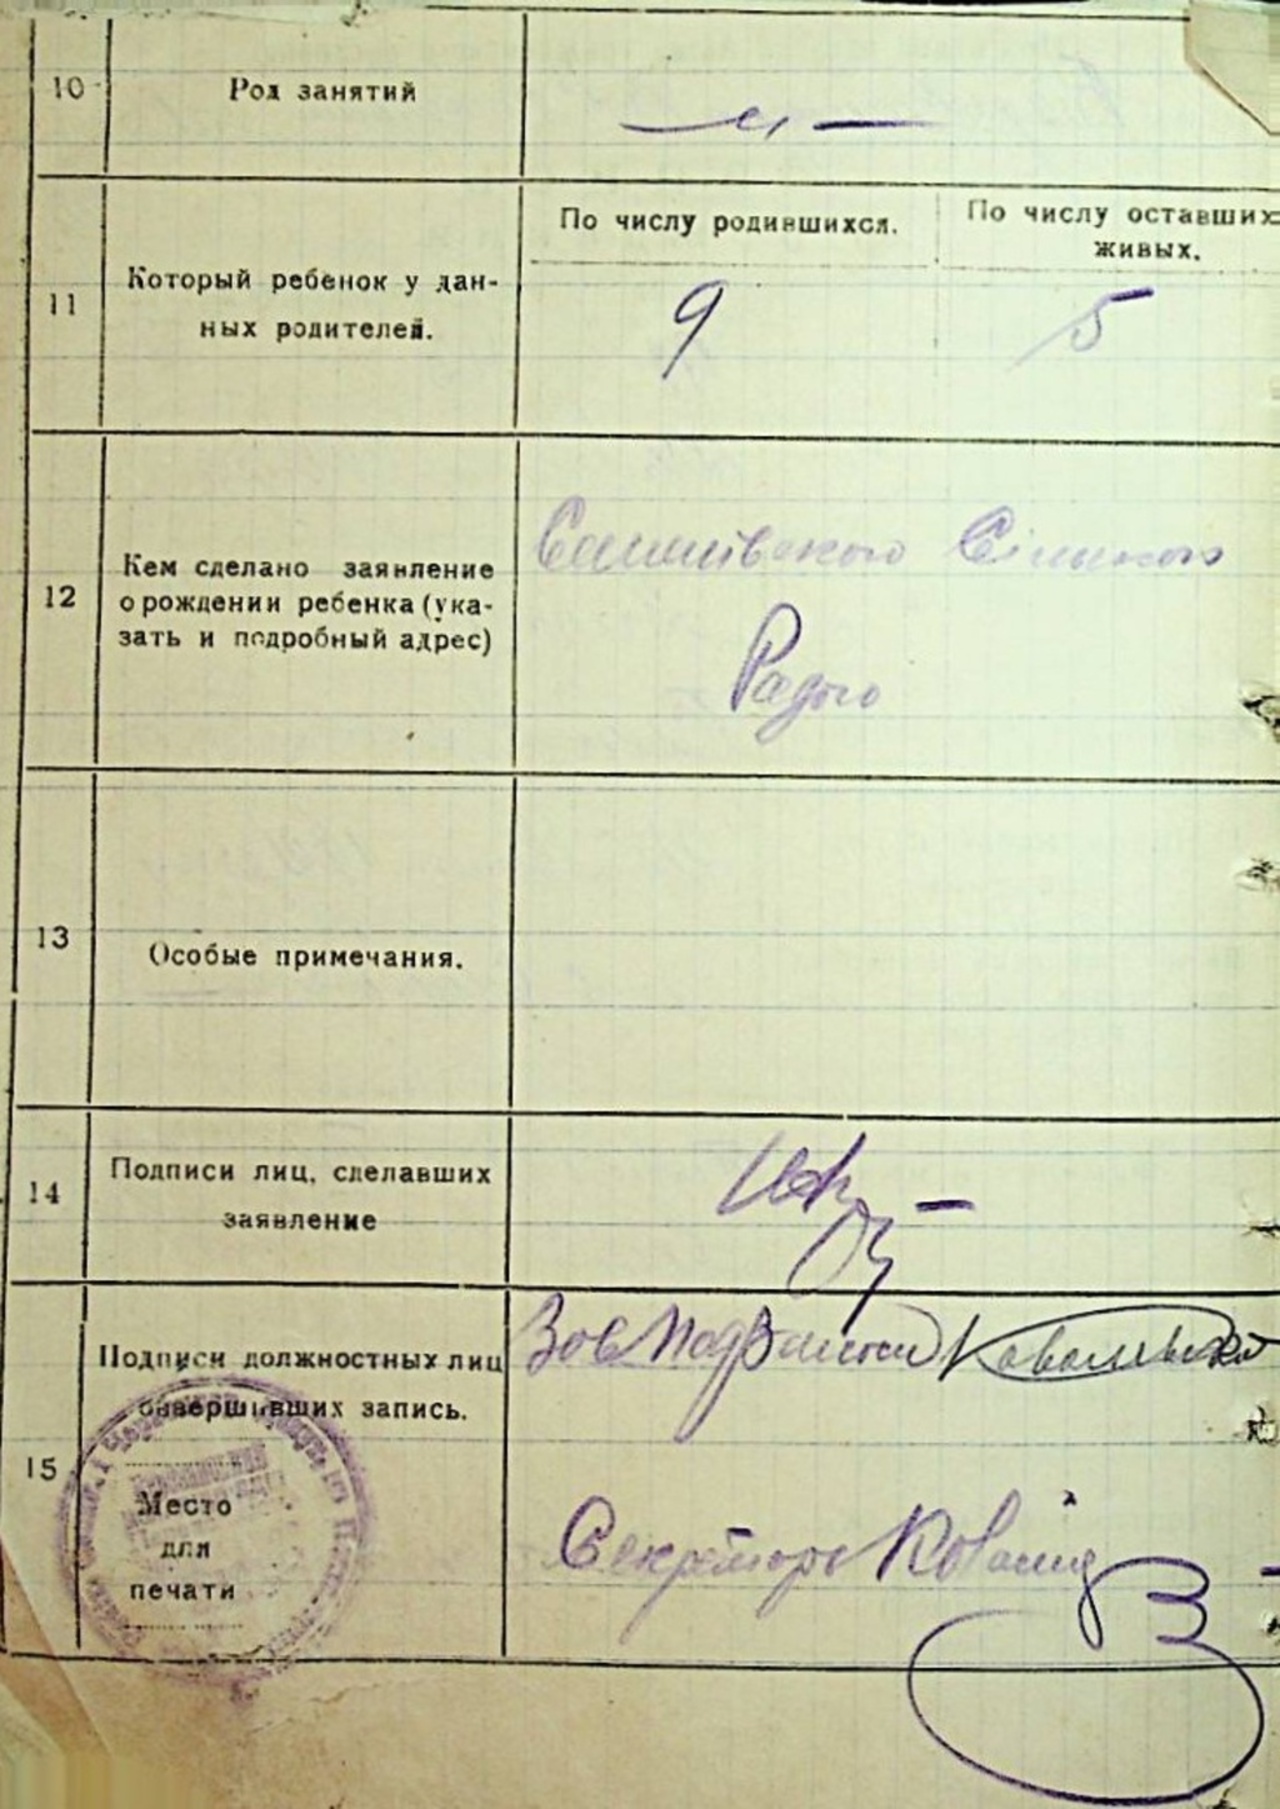 10 Род занятий
— „ —
По числу родившихся. По числу оставших
живых.
11 Который ребенок у дан-
ных родителей.
9 5
12 Кем сделано заявление
о рождении ребенка (ука-
зать и подробный адрес)
Сільською
Радою
13 Особые примечания.
14 Подписи лиц, сделавших
заявление
15 Подписи должностных лиц
совершивших запись.
Место
для
печати
Зав
Секретарь